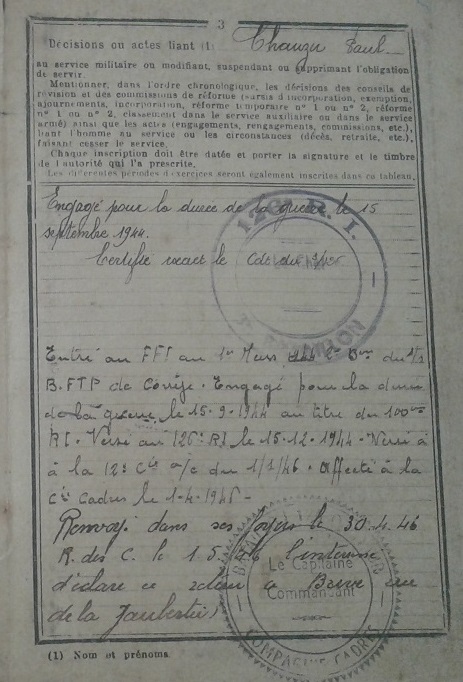 3
Décisions ou actes liant (1) Chauzu Paul
au service militaire ou modifiant, suspendant ou supprimant l'obligation
de servir.
Mentionner, dans l'ordre chronologique, les décisions des conseils de
révision et des commissions de réforme (sursis d'incorporation, exemption,
ajournements, incorporation, réforme temporaire n° 1 ou n° 2, réforme
n° 1 ou n° 2, classement dans le service auxiliaire ou dans le service
armé) ainsi que les actes (engagements, rengagements, commissions, etc.),
liant l'homme au service ou les circonstances (décès, retraite, etc.),
faisant cesser le service.
Chaque inscription doit être datée et porter la signature et le timbre
de l'autorité qui l'a prescrite.
Les différentes périodes d'exercices seront également inscrites dans ce tableau.
Engagé pour la durée de la guerre le 15
septembre 1944.
Certifié exact le Cdt du
126e R.I.
Entré au FFI au 1er Mars 2e Bon du
B. FTP de Corrèze. Engagé pour la durée
de la guerre le 15-9-1944 au titre du 100ème
RI. Versé au 126e RI le 15-12-1944. Versé à
à la 12e Cie a/c du 1/1/46. Affecté à la
Cie Cadres le 1-4-1946-
Renvoyé dans ses foyers le 30.4.46
R. des C. le 1.5.46 l'intéressé
déclare se retirer à Brive rue
de la Jaubertie
Le Capitaine
Commandant
COMPAGNIE CADRE
(1) Nom et prénoms